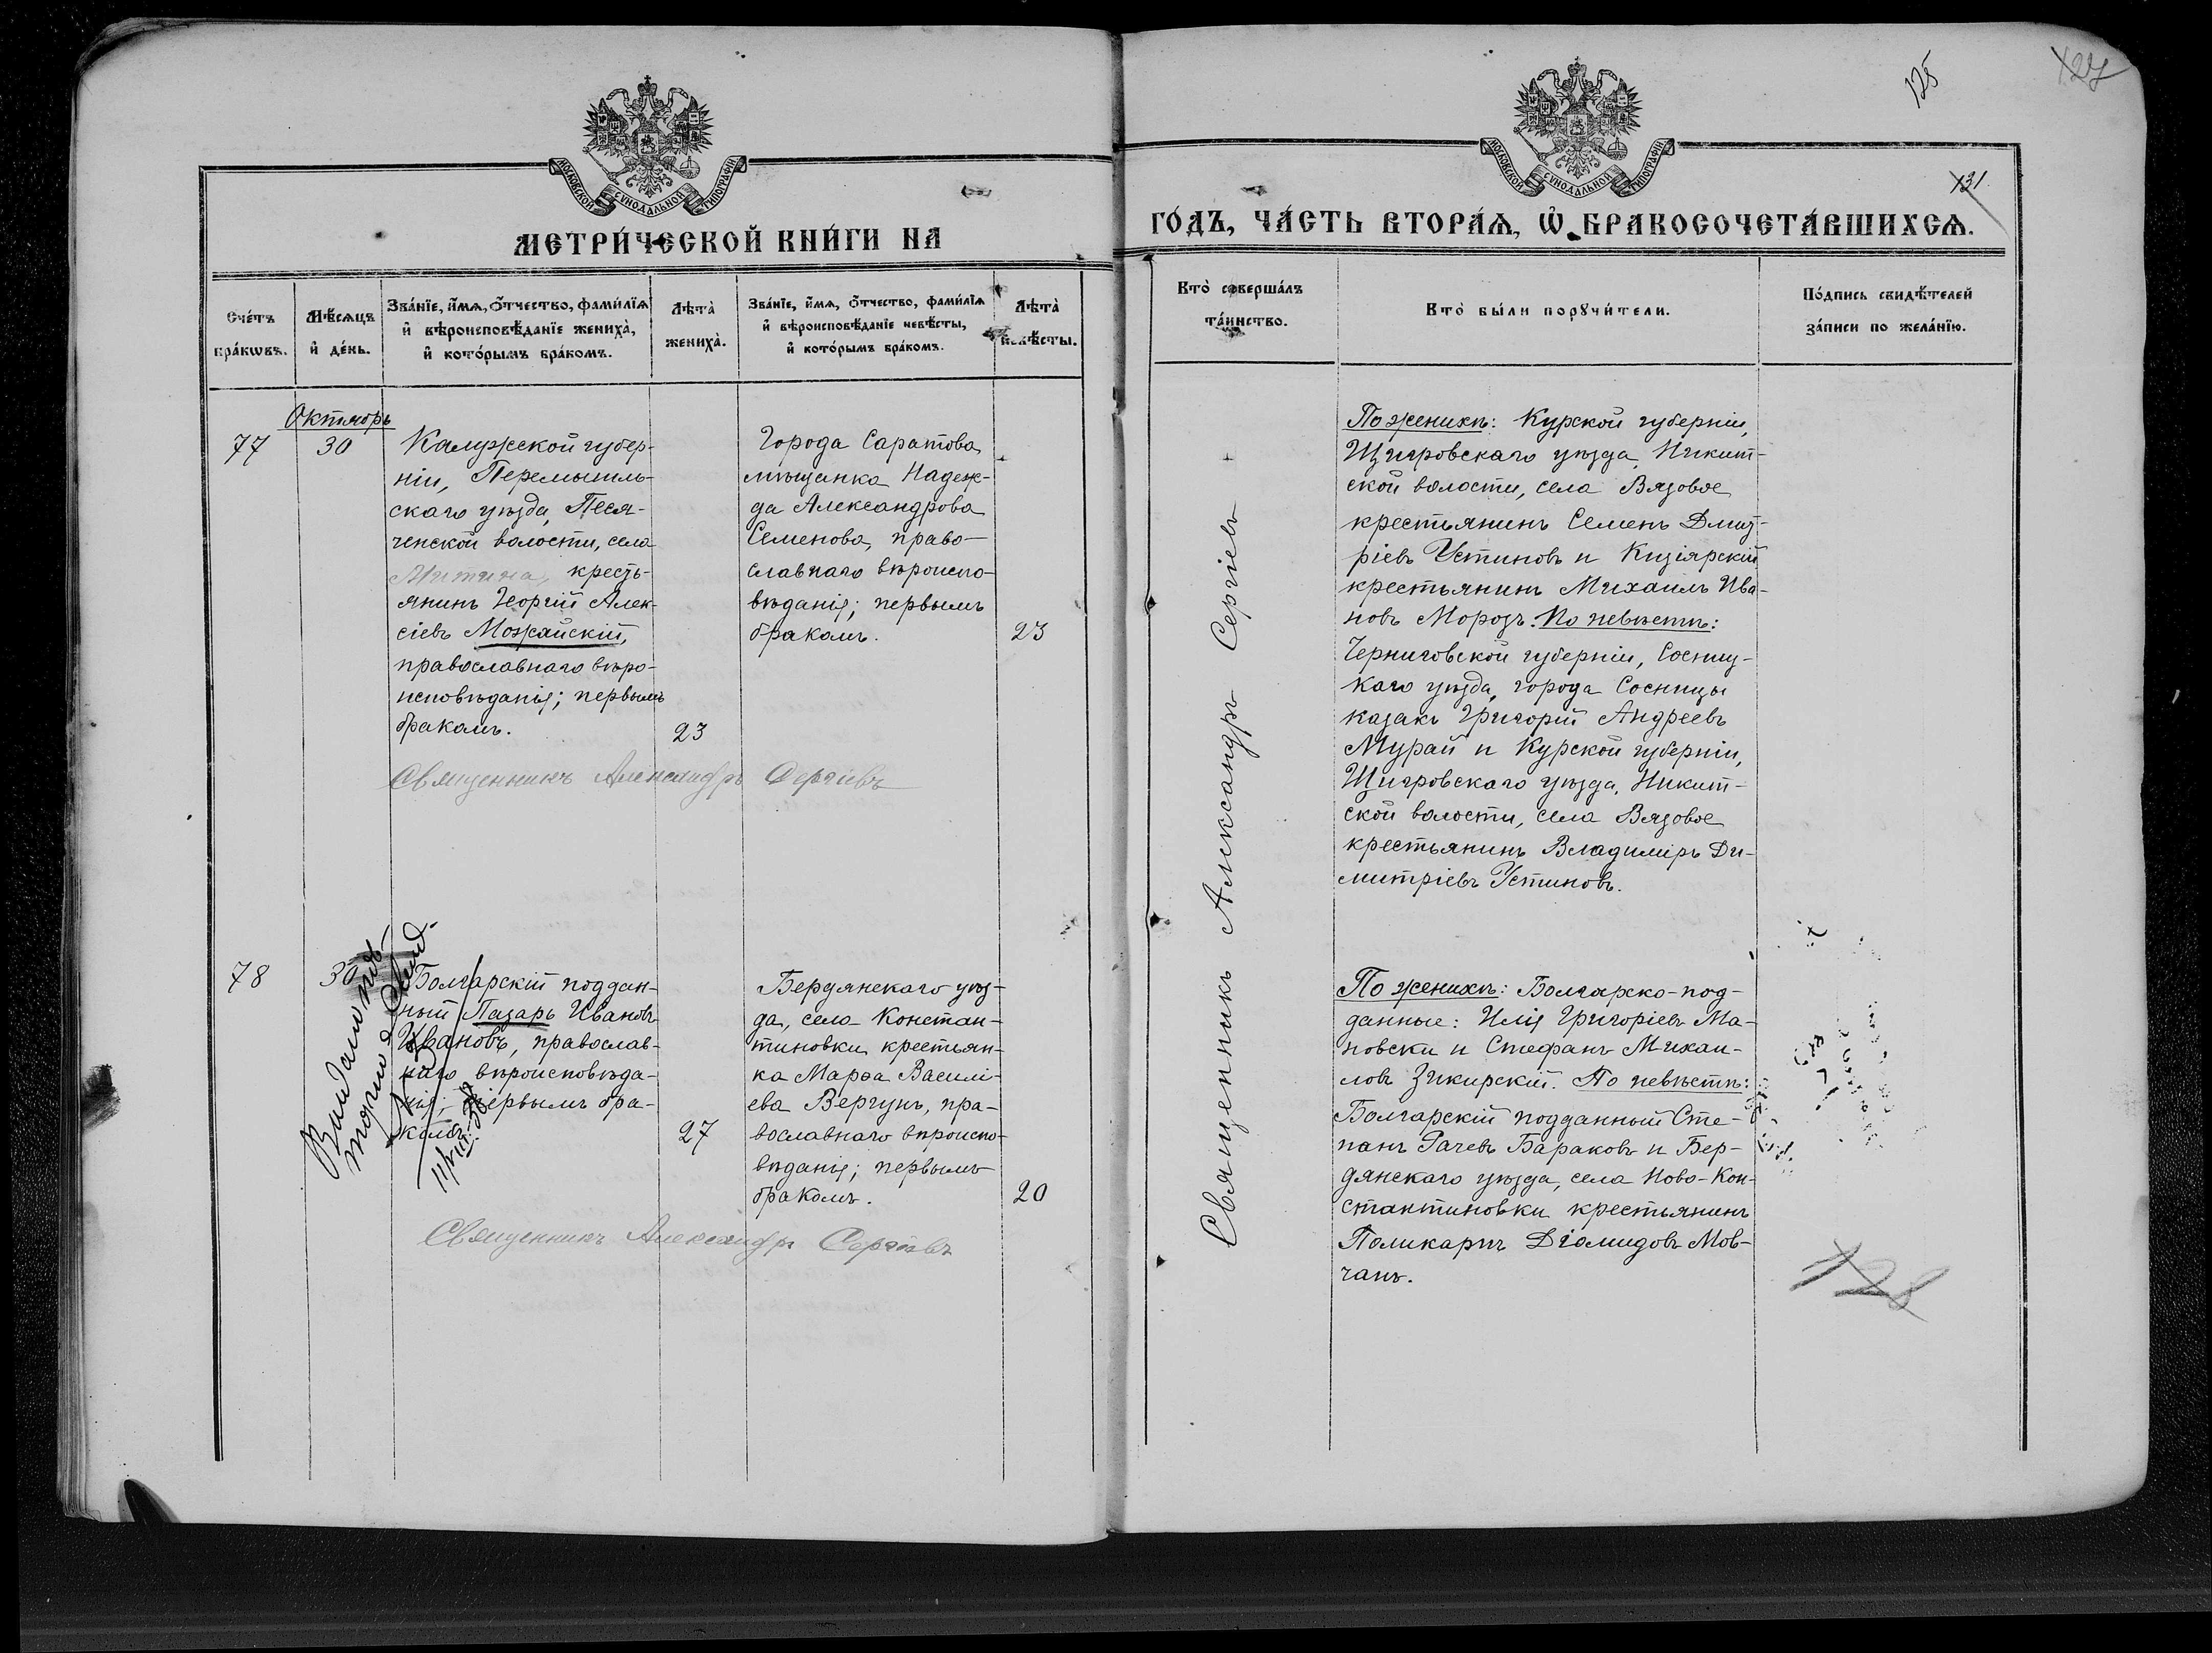 125
127
131
МОСКОВСКОЙ СѴНОДАЛЬНОЙ ТИПОГРАФІИ
МОСКОВСКОЙ СѴНОДАЛЬНОЙ ТИПОГРАФІИ
МЕТРИ́ЧЕСКОЙ КНИ́ГИ НА
ГО́ДЪ, ЧА́СТЬ ВТОРА́Ѧ, Ѡ҆ БРАКОСОЧЕТА́ВШИХСѦ.
Сче́тъ
бра́кѡвъ.
Мѣ́сѧцъ
и҆ де́нь.
Зва́нїе, и҆́мѧ, ѻ҆́тчество, фами́лїѧ
и҆ вѣроисповѣ́данїе жениха̀,
и҆ кото́рымъ бра́комъ.
Лѣта̀
жениха̀.
Зва́нїе, и҆́мѧ, ѻ҆́тчество, фами́лїѧ
и҆ вѣроисповѣ́данїе невѣ́сты,
и҆ кото́рымъ бра́комъ.
Лѣта̀
невѣ́сты.
Кто̀ соверша́лъ
та́инство.
Кто̀ бы́ли порꙋчи́тели.
По́дпись свидѣ́телей
за́писи по жела́нїю.
Октябрь
77
30
Калужской губер-
ніи, Перемышль-
скаго уѣзда, Песя-
ченской волости, села
Митина, кресть-
янинъ Георгій Алек-
сіевъ Можайскій,
православнаго вѣро-
исповѣданія; первымъ
бракомъ.
23
Города Саратова
мѣщанка Надеж-
да Александрова
Семенова, право-
славнаго вѣроиспо-
вѣданія; первымъ
бракомъ.
23
Священникъ Александръ Сергіевъ
Священникъ Александръ Сергіевъ
По женихѣ: Курской губерніи,
Щигровскаго уѣзда, Никит-
ской волости, села Вязовое
крестьянинъ Семенъ Дмит-
ріевъ Устиновъ и Кизіярскій
крестьянинъ Михаилъ Ива-
новъ Морозъ. По невѣстѣ:
Черниговской губерніи, Сосниц-
каго уѣзда, города Сосницы
казакъ Григорій Андреевъ
Мурай и Курской губерніи,
Щигровскаго уѣзда, Никит-
ской волости, села Вязовое
крестьянинъ Владиміръ Ди-
митріевъ Устиновъ.
78
30
Болгарскій поддан-
ный Лазарь Ивановъ
Ивановъ, православ-
наго вѣроисповѣда-
нія; первымъ бра-
комъ.
27
Бердянскаго уѣз-
да, село Констан-
тиновки крестьян-
ка Марѳа Василі-
ева Вергунъ, пра-
вославнаго вѣроиспо-
вѣданія; первымъ
бракомъ.
20
Священникъ Александръ Сергіевъ
По женихѣ: Болгарско-под-
данные: Илія Григоріевъ Ма-
новски и Стефанъ Михаи-
ловъ Зикирскій. По невѣстѣ:
Болгарскій подданный Сте-
панъ Рачевъ Бараковъ и Бер-
дянскаго уѣзда, села Ново-Кон-
стантиновки крестьянинъ
Поликарпъ Діомидовъ Мов-
чанъ.
128